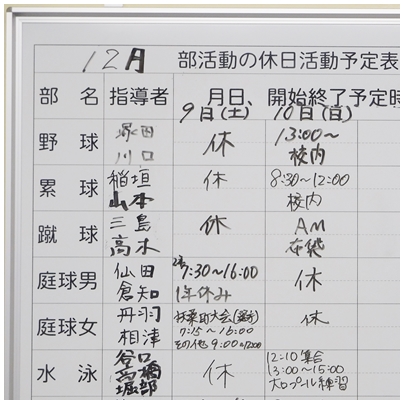 12月 部活動の休日活動予定表
部 名 指導者 月日、開始終了予定時
9日(土) 10日(日)
野 球 塚田 川口 休 13:00～ 校内
累 球 稲垣 山本 休 8:30～12:00 校内
蹴 球 三島 高木 休 AM
庭球男 仙田 倉知 7:30～16:00 1年休み 休
庭球女 丹羽 相津 7:15～16:00 その他 9:00～12:00 休
水 泳 谷口 高橋 堀部 休 12:10集合 13:00～15:00 大口プール練習